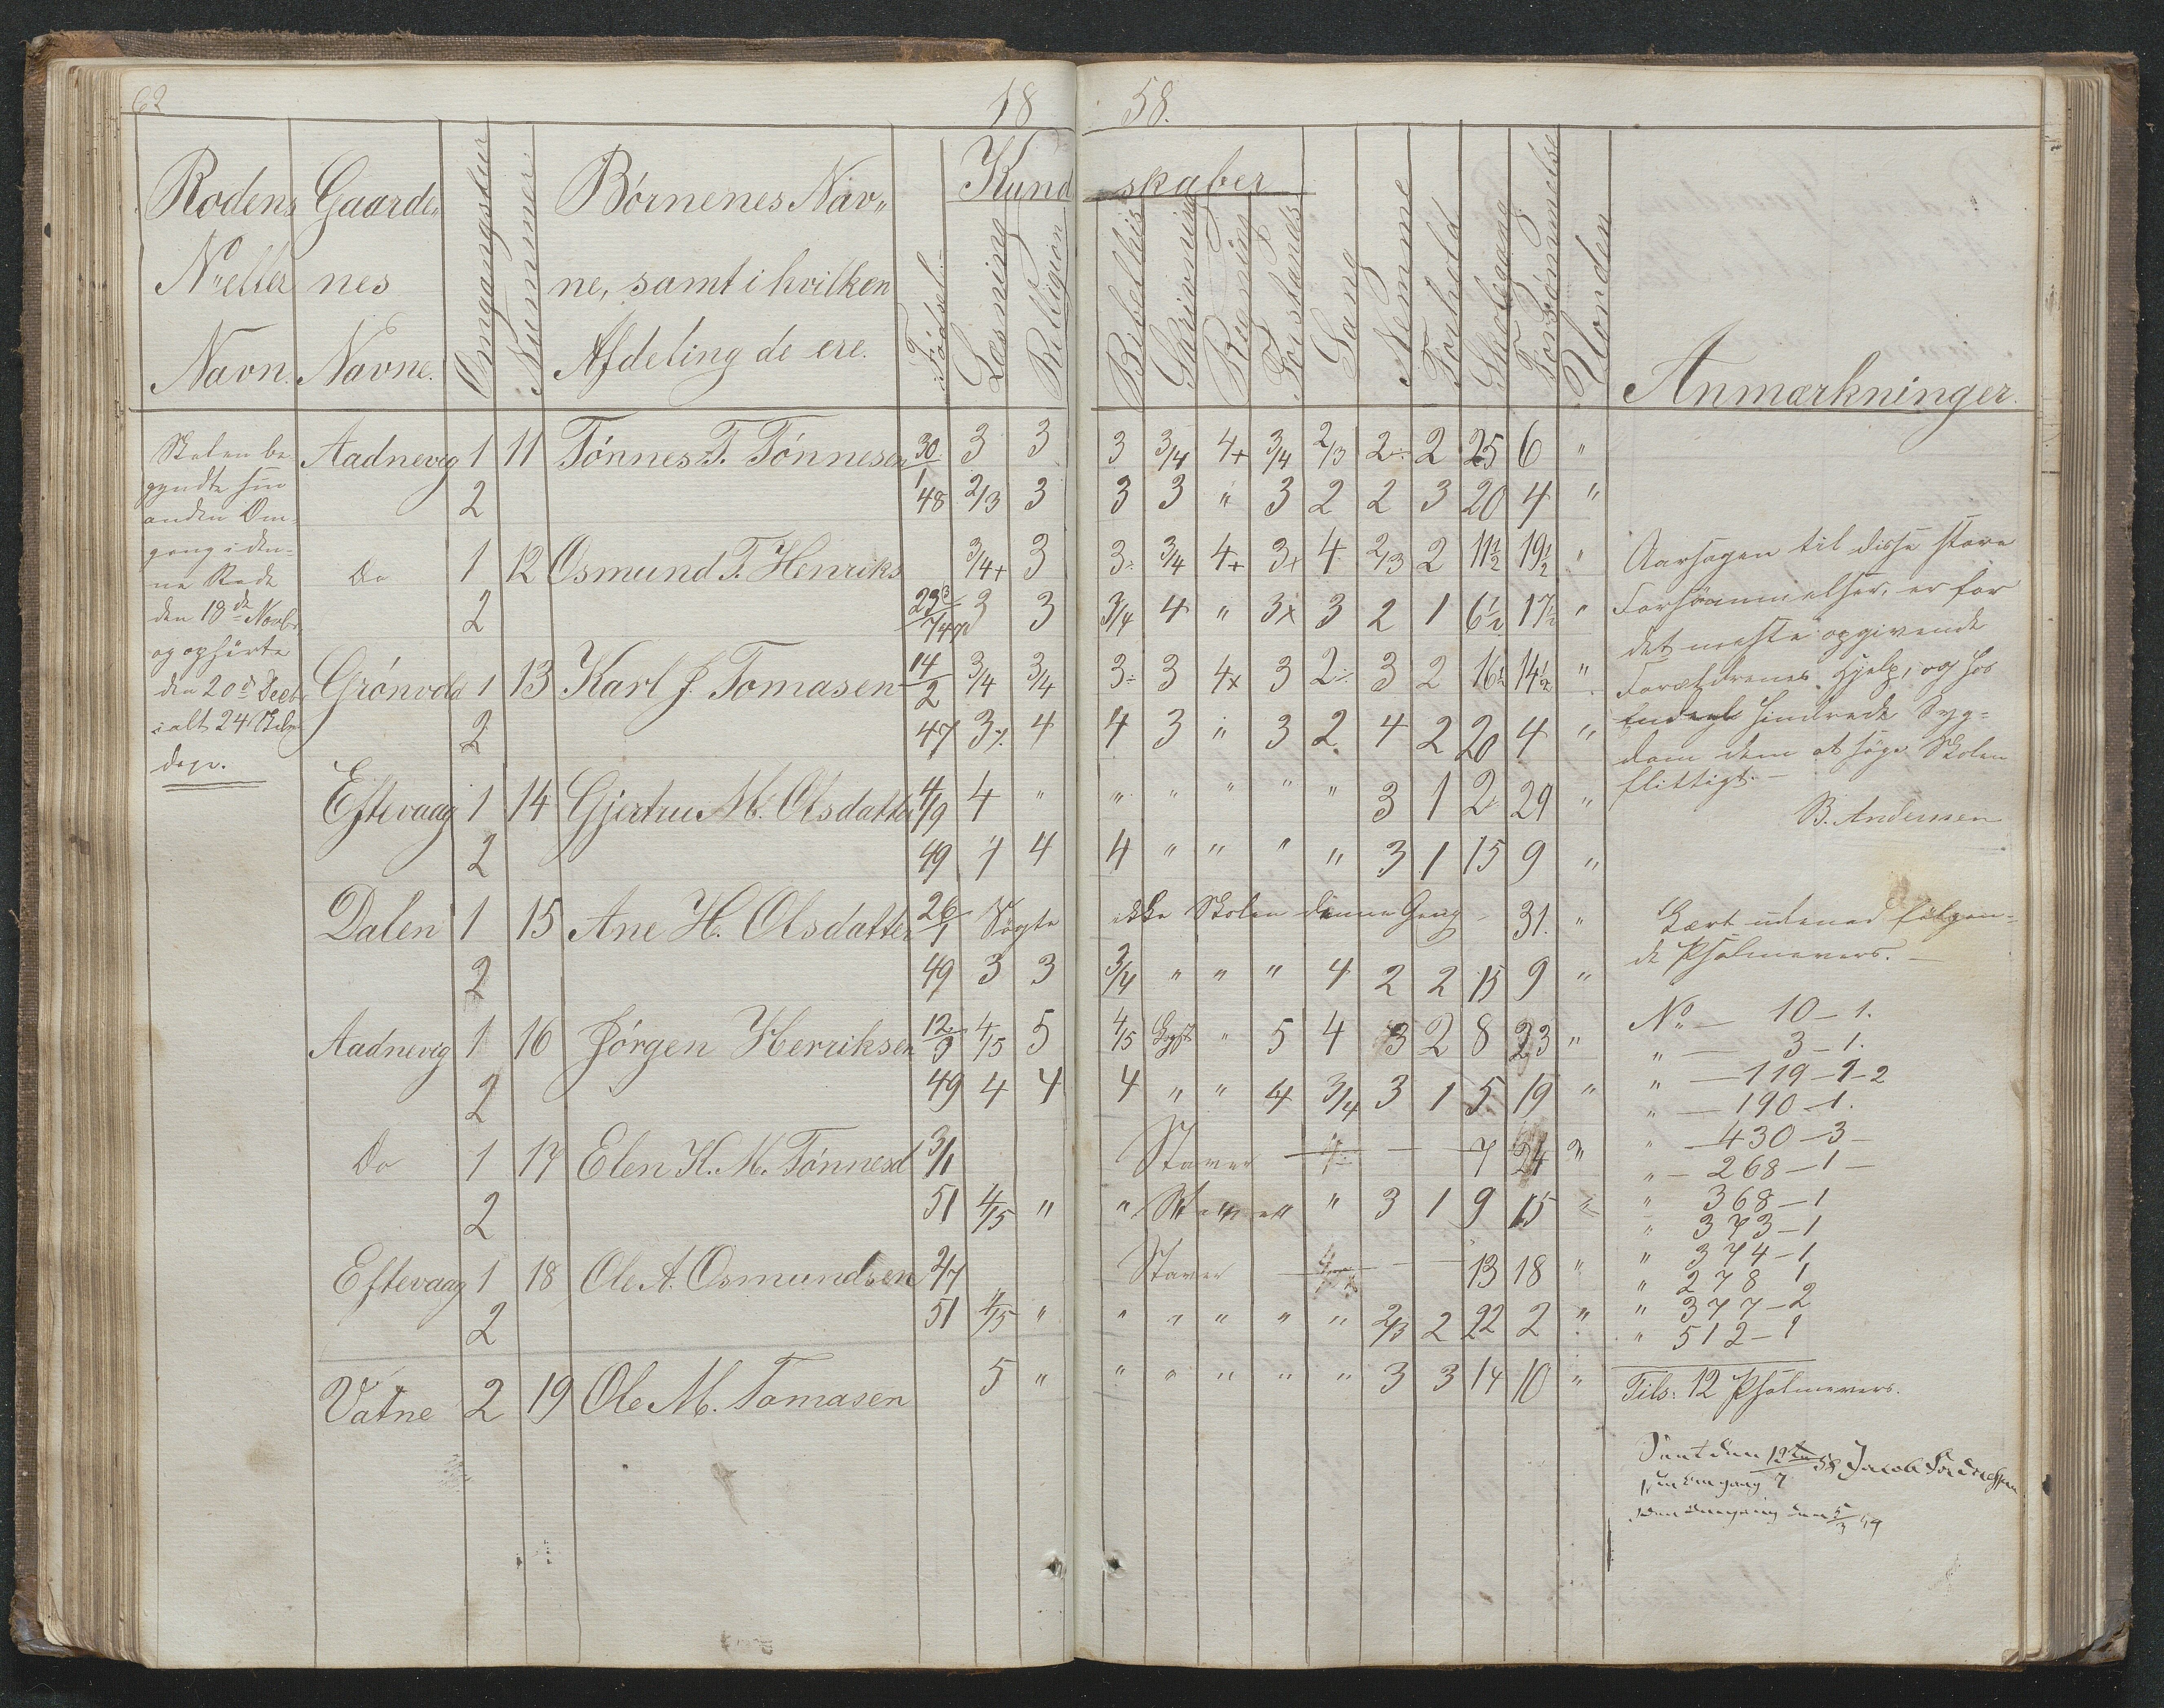 62
18 58.
Rodens Gaarde„ Omgangstur Nummer. Børnenes Nav„ Fødsel. Kundskaber
No eller nes ne, samt i hvilken Læsning Religion Bibelhis Skrivning Regning Forstands Sang Nemme Forhold Skolegang Forsømmelse Uorden
Navn. Navne. Afdeling de ere. Anmærkninger.
Skolen be-
gyndte sin
anden Om-
gang i den-
ne Rode
den 18de Novbr
og ophørte
den 20de Decbr
ialt 24 Skole
dage.
Aadnevig 1 11 Tønnes T. Tønnesen 30/1 3 3 3 3/4 4+ 3/4 2/3 2÷ 2 25 6 "
2 48 2/3 3 3 3 " 3 2 2 3 20 4 "
Do 1 12 Osmund T. Henriks 3/4+ 3 3÷ 3/4 4+ 3+ 4 2/3 2 11½ 19½ "
2 3 3 3/4 4 " 3x 3 2 1 6½ 17½ "
Grønvold 1 13 Karl J. Tomasen 14/2 3/4 3/4 3÷ 3 4x 3 2÷ 3 2 16½ 14½ "
2 47 4 4 3 " 3 2 4 2 20 4 "
Eftevaag 1 14 Gjertru M. Olsdatter 4/9 4 " " " " " " 3 1 2 29 "
2 49 4 4 4 " " " " 3 1 15 9 "
Dalen 1 15 Ane H. Olsdatter 26/1 Søgte ikke Skolen denne Gang 31. "
2 49 3 3 3/4 " " " 4 2 2 15 9 "
Aadnevig 1 16 Jørgen Henriksen 12/9 4/5 5 4/5 " 5 4 3 2 8 23 "
2 49 4 4 4 " " 4 3/4 3 1 5 19 "
Do 1 17 Elen K. M. Tønnesd 3/11 Staver 7 24 "
2 51 4/5 " " " 3 1 9 15 "
Eftevaag 1 18 Ole A. Osmundsen 2/7 Staver 13 18 "
2 51 4/5 " " " " " " 2/3 2 22 2 "
Vatne 2 19 Ole M. Tomasen 5 " " " " " " 3 3 14 10 "
Aarsagen til disse store
Forsømmelser, er for
det meste opgivende
Forældrenes Hjelp, og hos
Endeel hindrede Syg-
dom dem at søge Skolen
flittigt.
B. Andersen
Lært udenad følgen-
de Psalmevers.
No — 10 – 1.
" — 3 – 1.
" — 119 – 1 – 2
" — 190 – 1.
" — 430 – 3 –
" — 268 – 1 –
" 368 – 1
" 373 – 1
" 374 – 1
" 278 1
" 377 – 2
" 512 – 1
Tils: 12 Psalmevers.
Seet den 12te/7 58 Jacob
1ste Omgang
den 5/3 59